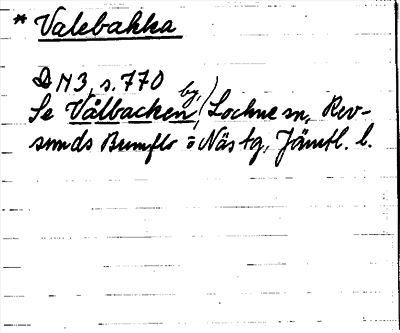 * Valebakka
DN 3, s. 770
Se Vålbacken by, Lockne sn, Rev-
sunds Brunflo o Näs tg, Jämtl. l.